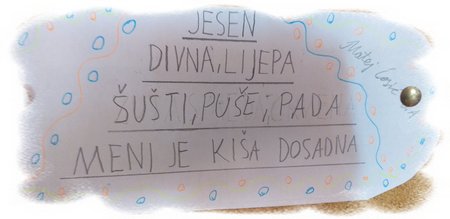 JESEN
DIVNA, LIJEPA
ŠUŠTI, PUŠE, PADA
MENI JE KIŠA DOSADNA
Matej